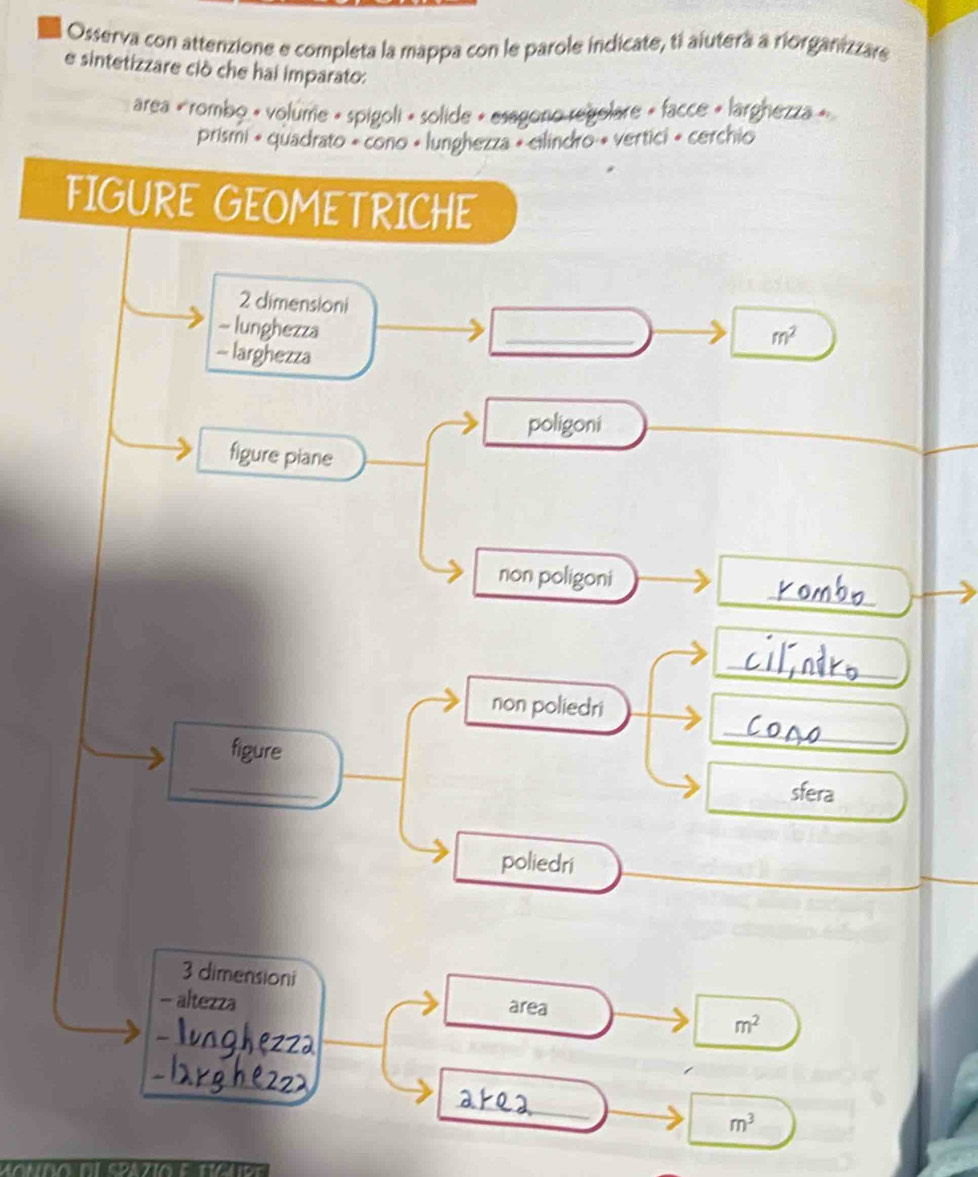 Osserva con attenzione e completa la mappa con le parole indicate, ti aiuterà a riorganizzare
e sintetizzare ciò che hai imparato:
area • rombo • volume • spigoli • solide • esagono regolare • facce • larghezza •
prismi • quadrato • cono • lunghezza • cilindro • vertici • cerchio
FIGURE GEOMETRICHE
2 dimensioni
- lunghezza
- larghezza
m²
poligoni
figure piane
non poligoni
rombo
cilindro
non poliedri
cono
figure
sfera
poliedri
3 dimensioni
- altezza
- lunghezza
- larghezza
area
m²
area
m³
MONDO DI SPAZIO E FIGURE